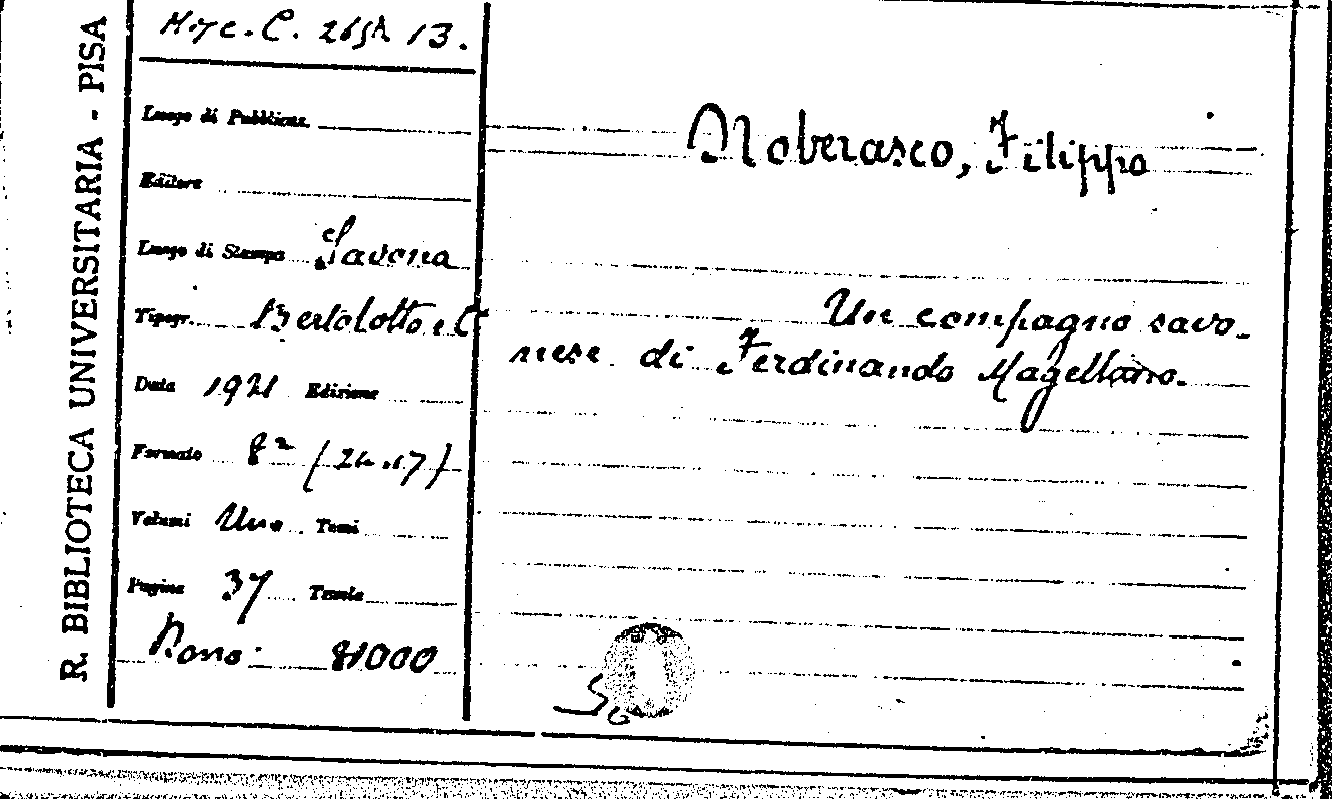 R. BIBLIOTECA UNIVERSITARIA - PISA
Misc. C. 13.
Luogo di Pubblicaz.
Editore
Luogo di Stampa Savona
Tipogr. Bertolotto e C.
Data 1921 Edizione
Formato 8°
Volumi Uno Tomi
Pagine 37 Tavole
81000
Noberasco, Filippo
Un compagno savo-
nese di Ferdinando Magellano.